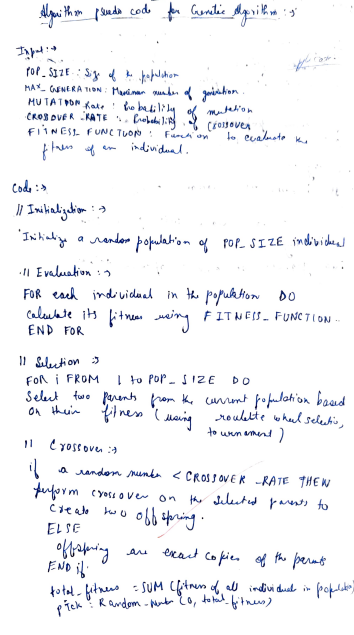 Algorithm pseudo code for Genetic Algorithm :→
Input :→
POP_SIZE : Size of the population
MAX_GENERATION : Maximum number of generation
MUTATION Rate : Probability of mutation
CROSSOVER_RATE : Probability of crossover
FITNESS FUNCTION : Function to evaluate the
fitness of an individual.
Code :→
// Initialization :→
Initialize a random population of POP_SIZE individual
// Evaluation :→
FOR each individual in the population DO
Calculate its fitness using FITNESS_FUNCTION.
END FOR
// Selection :→
FOR i FROM 1 to POP_SIZE DO
Select two parents from the current population based
on their fitness (using roulette wheel selection,
tournament)
// Crossover :→
if a random number < CROSSOVER_RATE THEN
perform crossover on the selected parents to
create two offspring.
ELSE
offspring are exact copies of the parents
END if.
total_fitness = SUM (fitness of all individual in population)
pick : Random_Number (0, total_fitness)